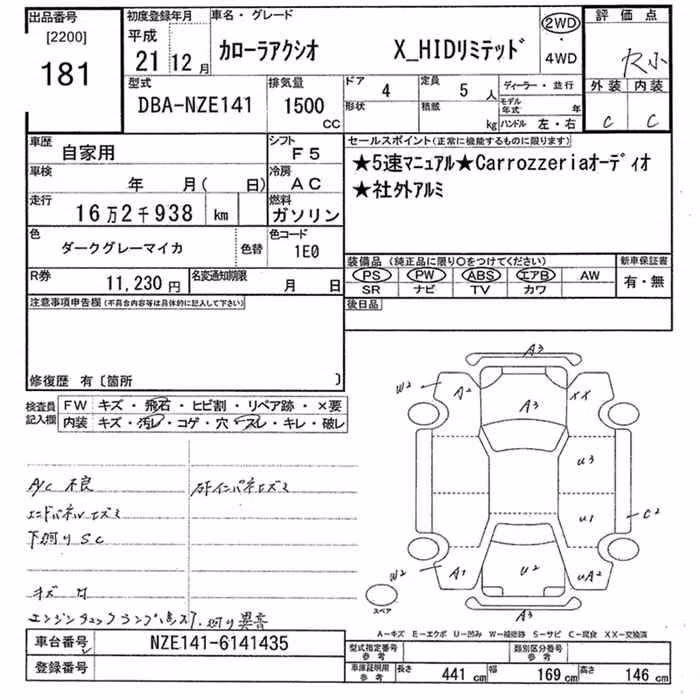 出品番号
[2200]
181
初度登録年月
平成
21年12月
車名・グレード
カローラアクシオ X_HIDリミテッド
2WD
・
4WD
評価点
外装 内装
C C
型式
DBA-NZE141
排気量
1500
CC
ドア 4
定員 5 人
形状
積載 kg
ディーラー・並行
モデル年式 年
ハンドル 左・右
車歴
自家用
シフト
F5
車検
年 月( 日)
冷房
AC
走行
16万2千938 km
燃料
ガソリン
色
ダークグレーマイカ
色替
色コード
1E0
R券
11,230円
名変通知期限
月 日
セールスポイント(正常に機能するものに限ります)
★5速マニュアル★Carrozzeriaオーディオ
★社外アルミ
装備品(純正品に限り○をつけてください)
PS PW ABS エアB AW
SR ナビ TV カワ
新車保証書
有・無
後日品
注意事項申告欄(不具合内容等は具体的に記入して下さい)
修復歴 有〔箇所 〕
検査員
記入欄
FW キズ・飛石・ヒビ割・リペア跡・×要
内装 キズ・汚レ・コゲ・穴・スレ・キレ・破レ
A/C 不良
エンドパネルエクボ
下廻りSC
キズ
エンジンチェックランプ点灯. 廻り異音
A3
W2
A2
XX
A3
U3
U1
C2
W2
A1
U2
UA2
A3
スペア
A−キズ E−エクボ U−凹み W−補修跡 S−サビ C−腐食 XX−交換済
車台番号
NZE141-6141435
登録番号
型式指定番号
参考
類別区分番号
参考
車庫証明用
参考
長さ 441 cm 幅 169 cm 高さ 146 cm